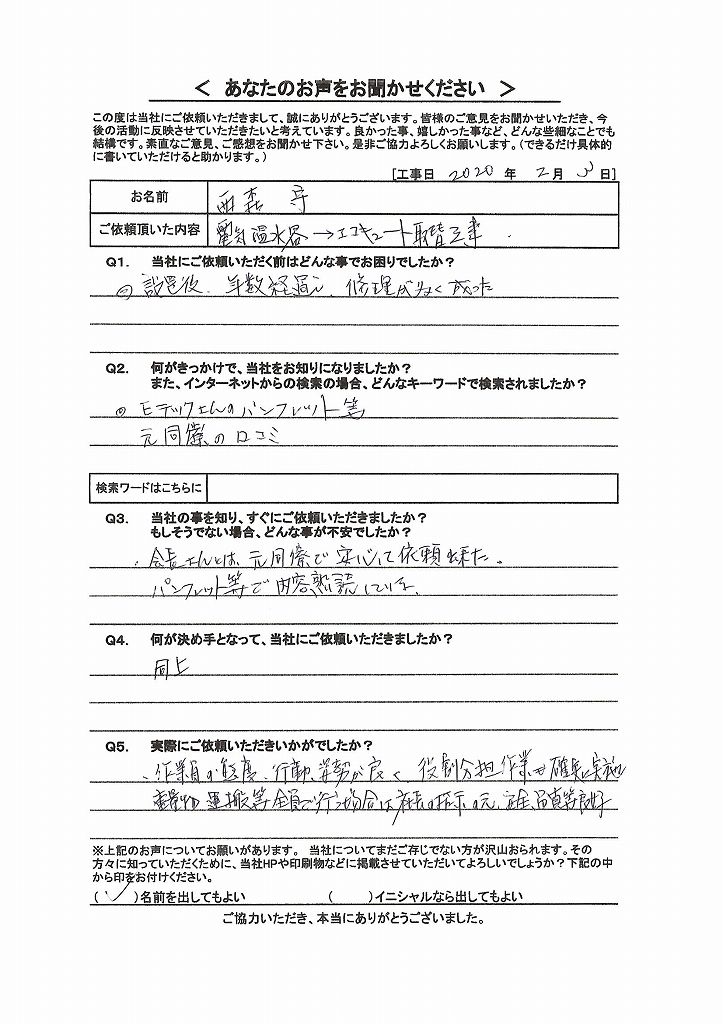 ＜ あなたのお声をお聞かせください ＞
この度は当社にご依頼いただきまして、誠にありがとうございます。皆様のご意見をお聞かせいただき、今
後の活動に反映させていただきたいと考えています。良かった事、嬉しかった事など、どんな些細なことでも
結構です。素直なご意見、ご感想をお聞かせ下さい。是非ご協力よろしくお願いします。（できるだけ具体的
に書いていただけると助かります。）
[工事日 2020 年 2 月 3 日]
お名前 西森 守
ご依頼頂いた内容 電気温水器→エコキュート取替工事.
Q1. 当社にご依頼いただく前はどんな事でお困りでしたか？
設置後、年数経過し、修理が多く成った
Q2. 何がきっかけで、当社をお知りになりましたか？
また、インターネットからの検索の場合、どんなキーワードで検索されましたか？
モテックさんのパンフレット等
元同僚の口コミ
検索ワードはこちらに
Q3. 当社の事を知り、すぐにご依頼いただきましたか？
もしそうでない場合、どんな事が不安でしたか？
会長さんとは、元同僚で安心して依頼出来た。
パンフレット等で内容、熟読していた.
Q4. 何が決め手となって、当社にご依頼いただきましたか？
同上
Q5. 実際にご依頼いただきいかがでしたか？
、作業員の態度、行動、姿勢が良く、役割分担作業が確実に実施
重量物運搬等全員で行う場合は社長の指示の元、安全、品質等良好
※上記のお声についてお願いがあります。 当社についてまだご存じでない方が沢山おられます。その
方々に知っていただくために、当社HPや印刷物などに掲載させていただいてよろしいでしょうか？下記の中
から印をお付けください。
（ ✓ ）名前を出してもよい （ ）イニシャルなら出してもよい
ご協力いただき、本当にありがとうございました。